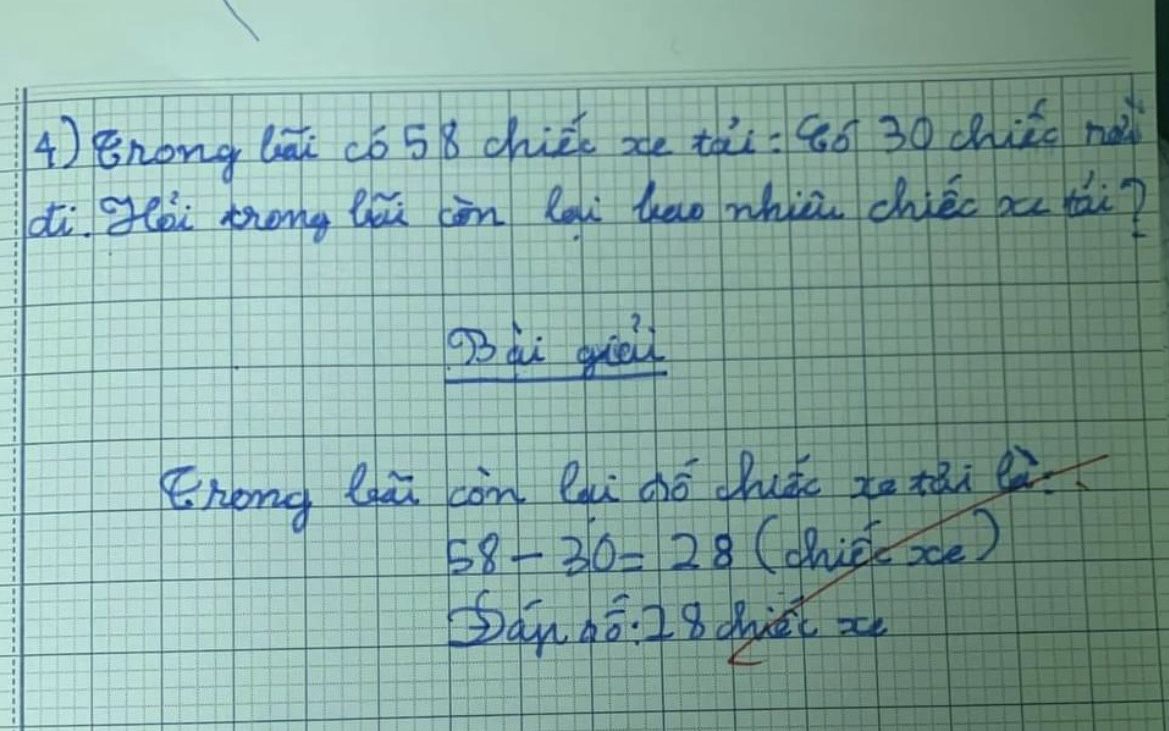 4) Trong bãi có 58 chiếc xe tải. Có 30 chiếc rời
đi. Hỏi trong bãi còn lại bao nhiêu chiếc xe tải?
Bài giải
Trong bãi còn lại số chiếc xe tải là:
58 - 30 = 28 (chiếc xe)
Đáp số: 28 chiếc xe